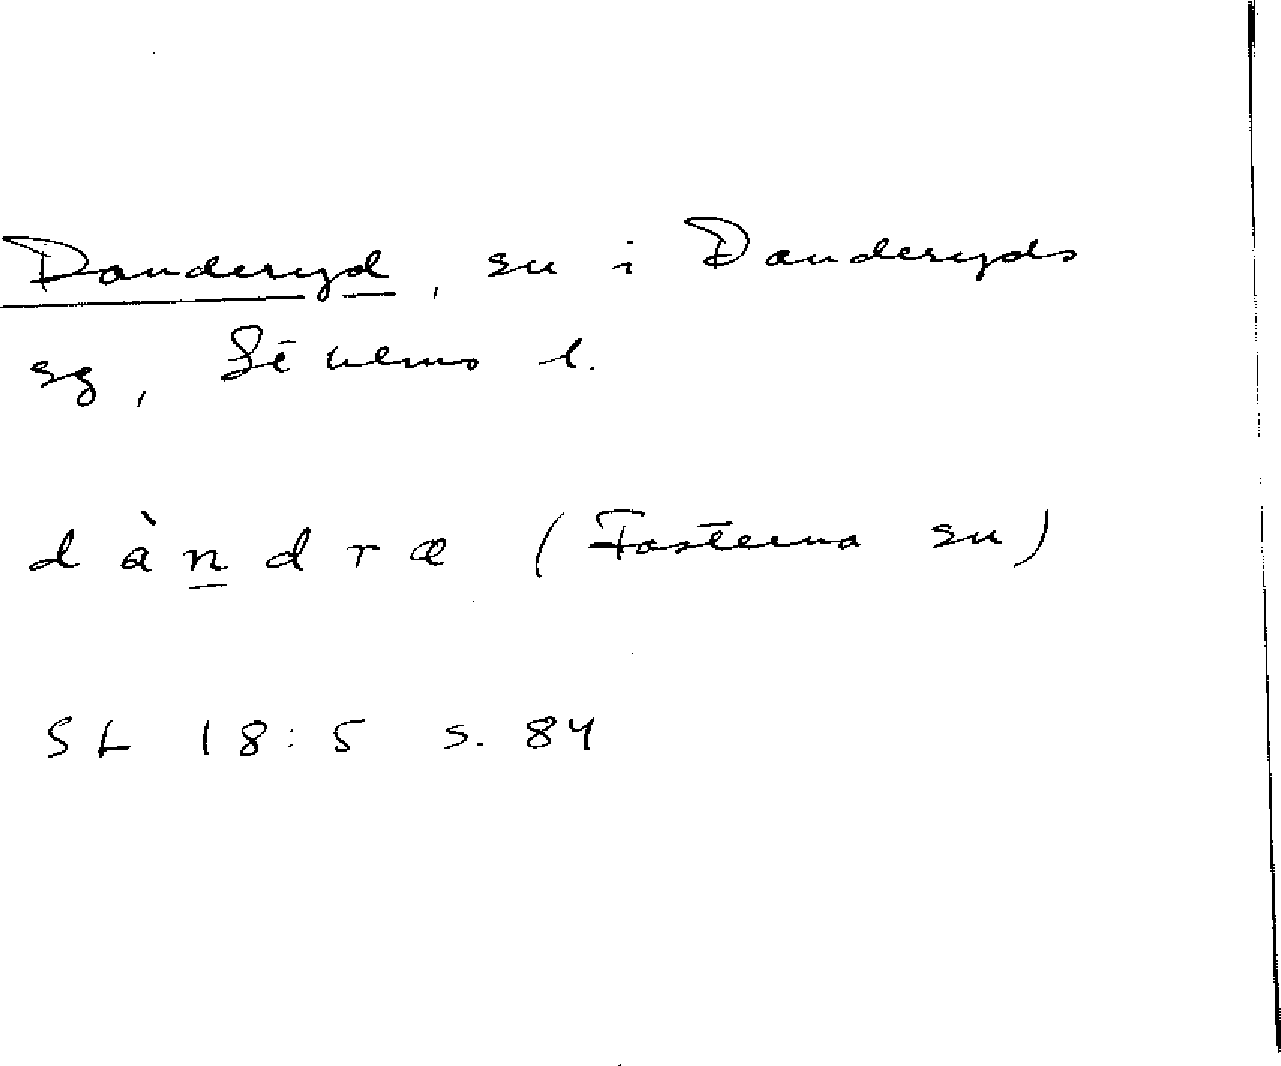 Danderyd, sn i Danderyds
sg, Sthlms l.
dàndræ (Fasterna sn)
SL 18:5 s. 84